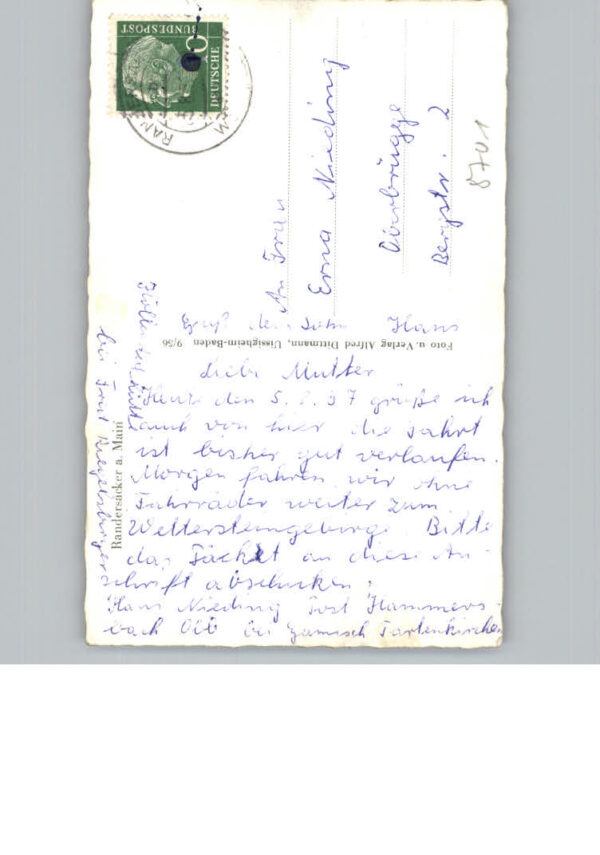 DEUTSCHE
BUNDESPOST
10
An Frau
Erna Nieding
Oberbrügge
Bergstr. 2
8701
Foto u. Verlag Alfred Dittmann, Uissigheim-Baden 9/56
Randersacker a. Main
Liebe Mutter
Heute den 5. 8. 57 grüße ich
auch von hier die Fahrt
ist bisher gut verlaufen.
Morgen fahren wir ohne
Fahrräder weiter zum
Wettersteingebirge. Bitte
das Päcket an diese An-
schrift abschicken:
Hans Nieding Post Hammers-
bach Obb bei Garmisch Partenkirchen
Höllentalhütte
bei Frau
Gruß dein Sohn Hans